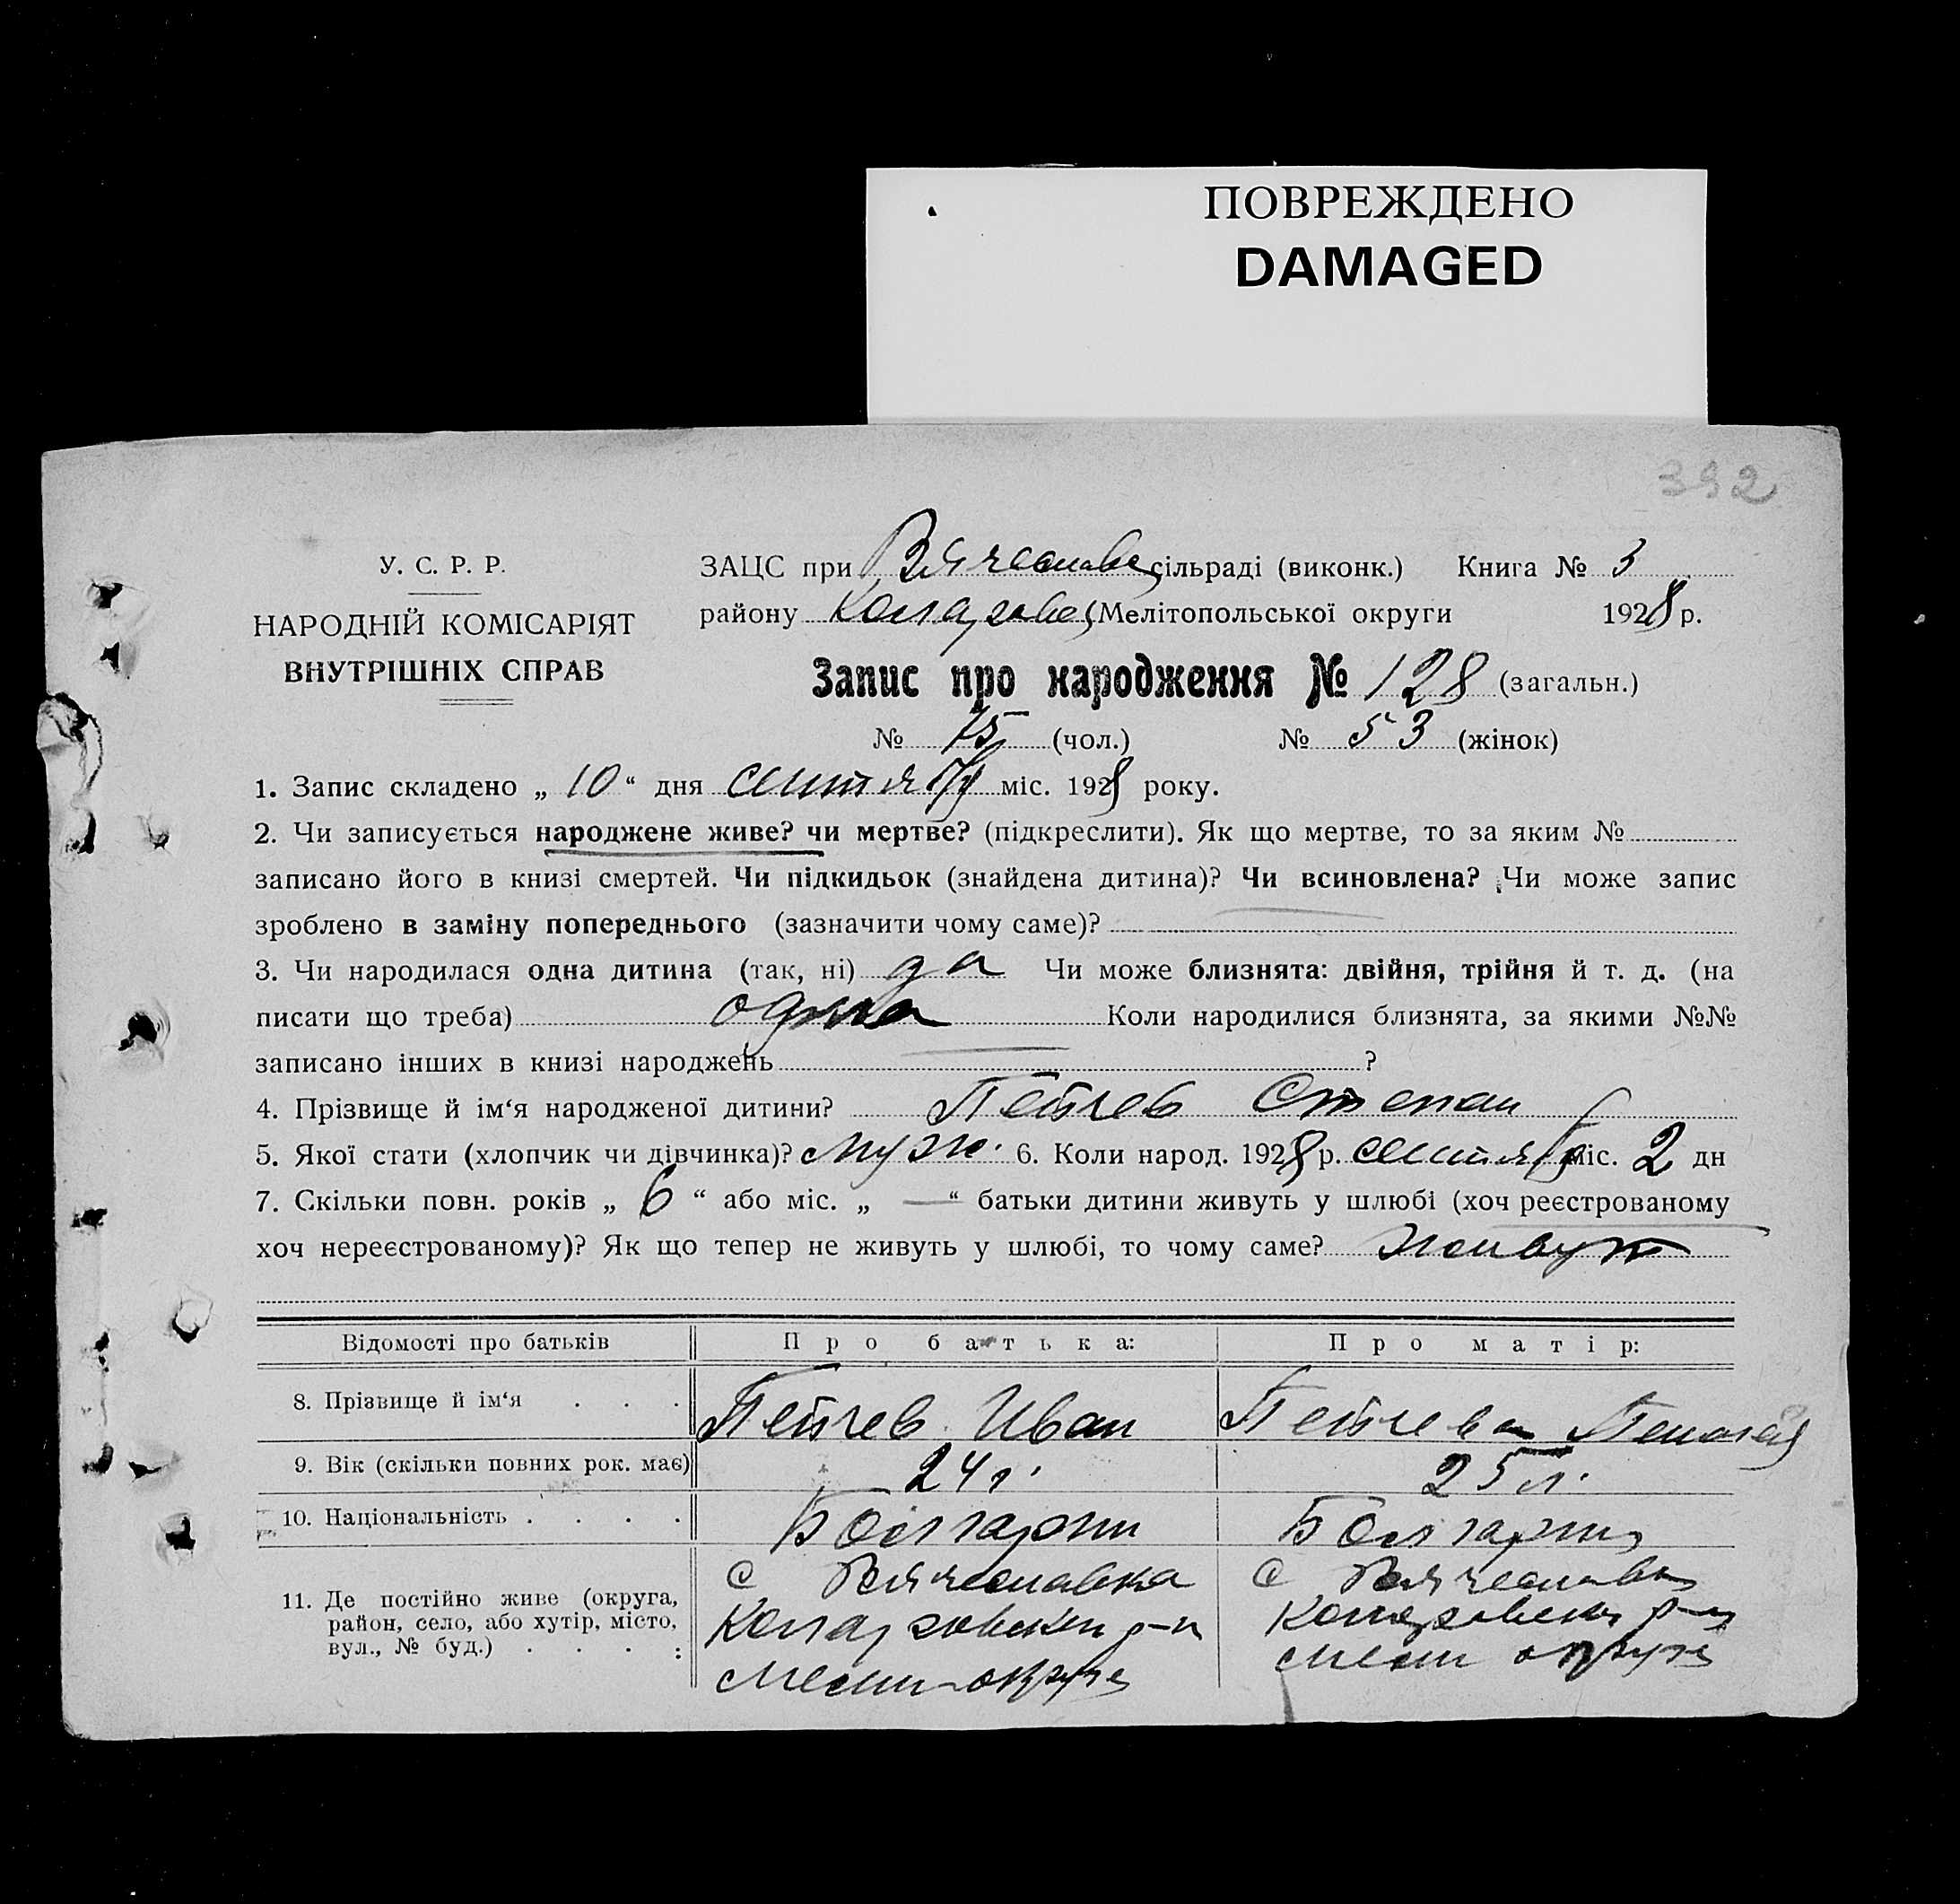 ПОВРЕЖДЕНО
DAMAGED
392
У. С. Р. Р.
НАРОДНІЙ КОМІСАРІЯТ
ВНУТРІШНІХ СПРАВ
ЗАЦС при Вячеславс сільраді (виконк.) Книга № 3
району Коларовс Мелітопольської округи 1928 р.
Запис про народження № 128 (загальн.)
№ 75 (чол.) № 53 (жінок)
1. Запис складено „ 10 “ дня сентяб міс. 1928 року.
2. Чи записується народжене живе? чи мертве? (підкреслити). Як що мертве, то за яким №
записано його в книзі смертей. Чи підкидьок (знайдена дитина)? Чи всиновлена? Чи може запис
зроблено в заміну попереднього (зазначити чому саме)?
3. Чи народилася одна дитина (так, ні) да Чи може близнята: двійня, трійня й т. д. (на
писати що треба) одна Коли народилися близнята, за якими №№
записано інших в книзі народжень ?
4. Прізвище й ім‘я народженої дитини? Пейчев Степан
5. Якої стати (хлопчик чи дівчинка)? муж. 6. Коли народ. 1928 р. сентяб міс. 2 дн
7. Скільки повн. років „ 6 “ або міс. „ — “ батьки дитини живуть у шлюбі (хоч реєстрованому
хоч нереєстрованому)? Як що тепер не живуть у шлюбі, то чому саме? живут
Відомості про батьків Про батька: Про матір:
8. Прізвище й ім‘я . . . Пейчев Иван Пейчева
9. Вік (скільки повних рок. має) 24 г. 25 л.
10. Національність . . . . Болгарин Болгарка
11. Де постійно живе (округа,
район, село, або хутір, місто,
вул., № буд.) . . . .
с Вячеславка
Коларовский р-н
Мелит-округа
с Вячеславка
Коларовский р-н
Мелит округа